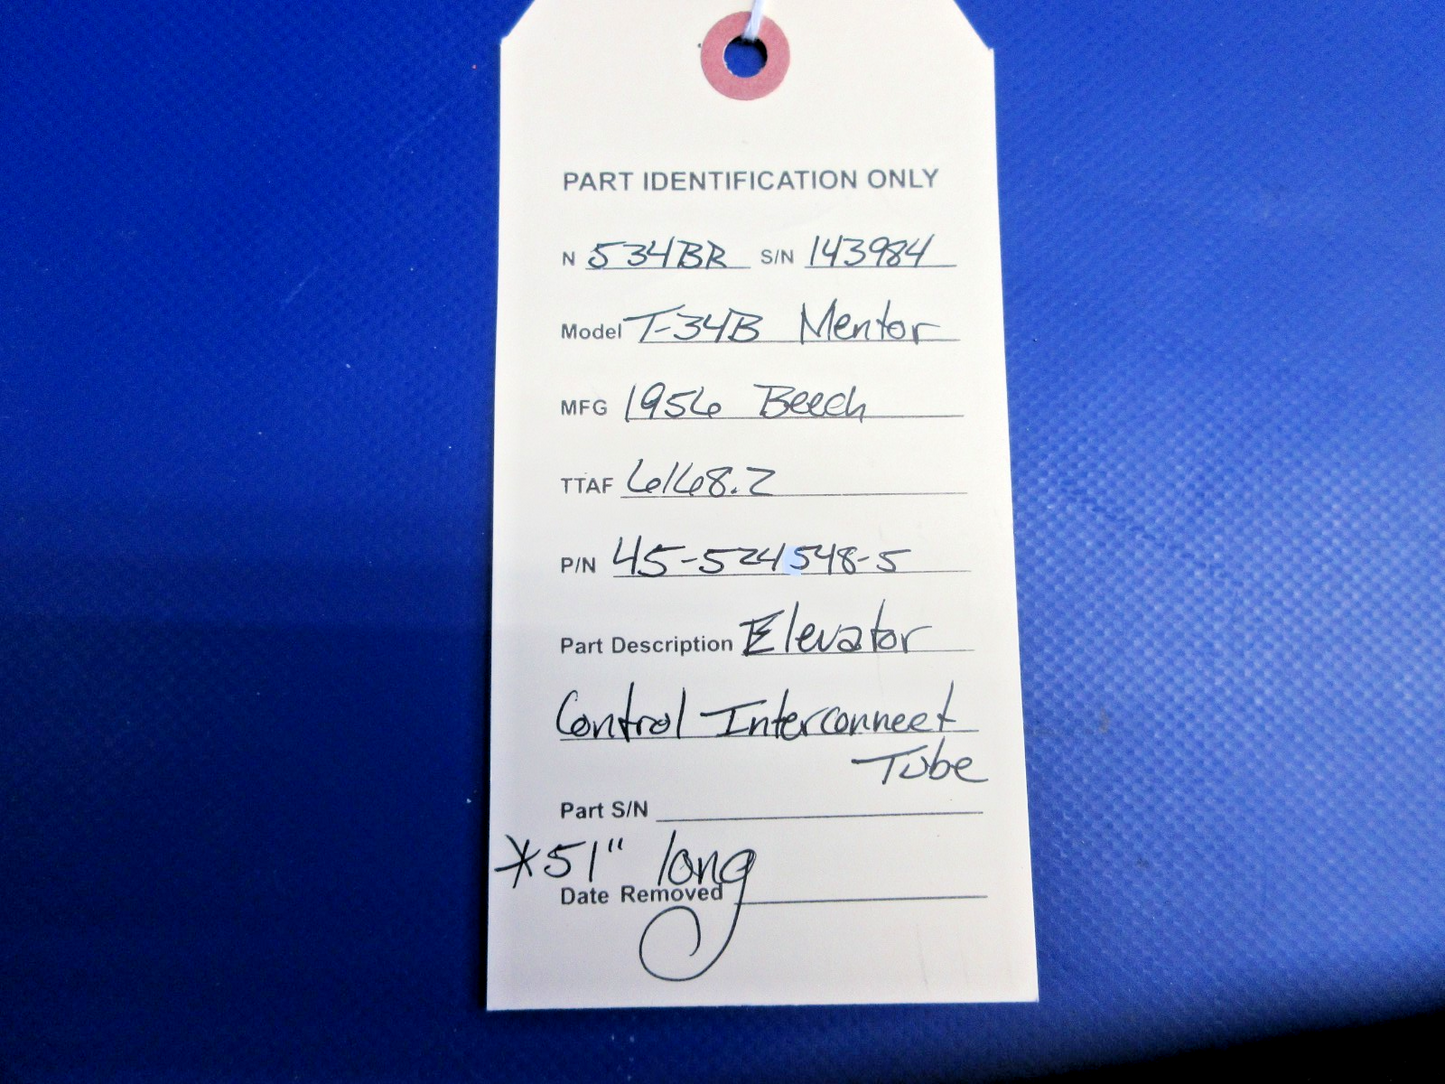 PART IDENTIFICATION ONLY
N 534BR S/N 143984
Model T-34B Mentor
MFG 1956 Beech
TTAF 6168.2
P/N 45-524548-5
Part Description Elevator
Control Interconnect
Tube
Part S/N
*51" long
Date Removed